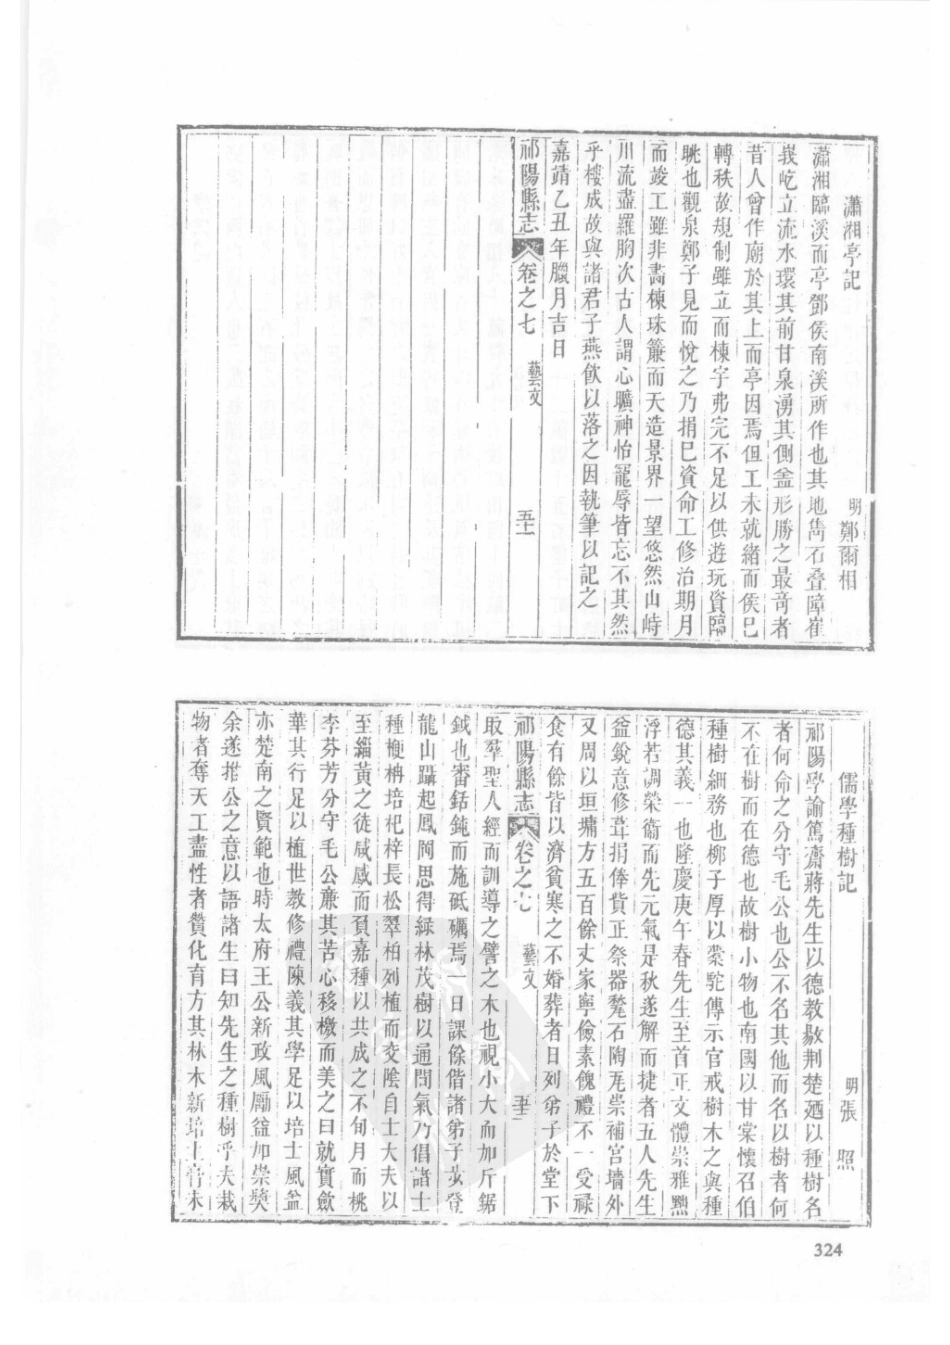 瀟湘亭記
明鄭爾相
瀟湘臨溪而亭鄧侯南溪所作也其地雋石叠障崔
峩屹立流水環其前甘泉湧其側葢形勝之最奇者
昔人曾作廟於其上而亭因焉但工未就緒而侯已
轉秩故規制雖立而棟宇弗完不足以供遊玩資臨
眺也觀泉鄭子見而悅之乃捐巳資命工修治期月
而竣工雖非畵棟珠簾而天造景界一望悠然山峙
川流盡羅胸次古人謂心曠神怡寵辱皆忘不其然
乎樓成故與諸君子燕飮以落之因執筆以記之
嘉靖乙丑年臘月吉日
祁陽縣志
卷之七
藝文
五十一
儒學種樹記
明張照
祁陽學諭篤齋蔣先生以德教敭荆楚廼以種樹名
者何命之分守毛公也公不名其他而名以樹者何
不在樹而在德也故樹小物也南國以甘棠懷召伯
種樹細務也柳子厚以槖駝傳示官戒樹木之與種
德其義一也隆慶庚午春先生至首正文體崇雅黜
浮若調榮衞而先元氣是秋遂解而捷者五人先生
益銳意修葺捐俸貲正祭器甃石陶瓦崇補宮墻外
又周以垣墉方五百餘丈家寧儉素餽禮不一受祿
食有餘皆以濟貧寒之不婚葬者日列弟子於堂下
祁陽縣志
卷之七
藝文
五十二
取羣聖人經而訓導之譬之木也視小大而加斤鋸
鉞也審銛鈍而施砥礪焉一日課餘偕諸弟子員登
龍山躡起鳳岡思得綠林茂樹以通問氣乃倡諸士
種楩枏培杞梓長松翠柏列植而交陰自士大夫以
至緇黃之徒咸感而貢嘉種以共成之不旬月而桃
李芬芳分守毛公亷其苦心移檄而美之曰就實歛
華其行足以植世教修禮陳義其學足以培士風益
亦楚南之賢範也時太府王公新政風勵益加崇奬
余遂推公之意以語諸生曰知先生之種樹乎夫栽
物者奪天工盡性者贊化育方其林木新培土膏未
324